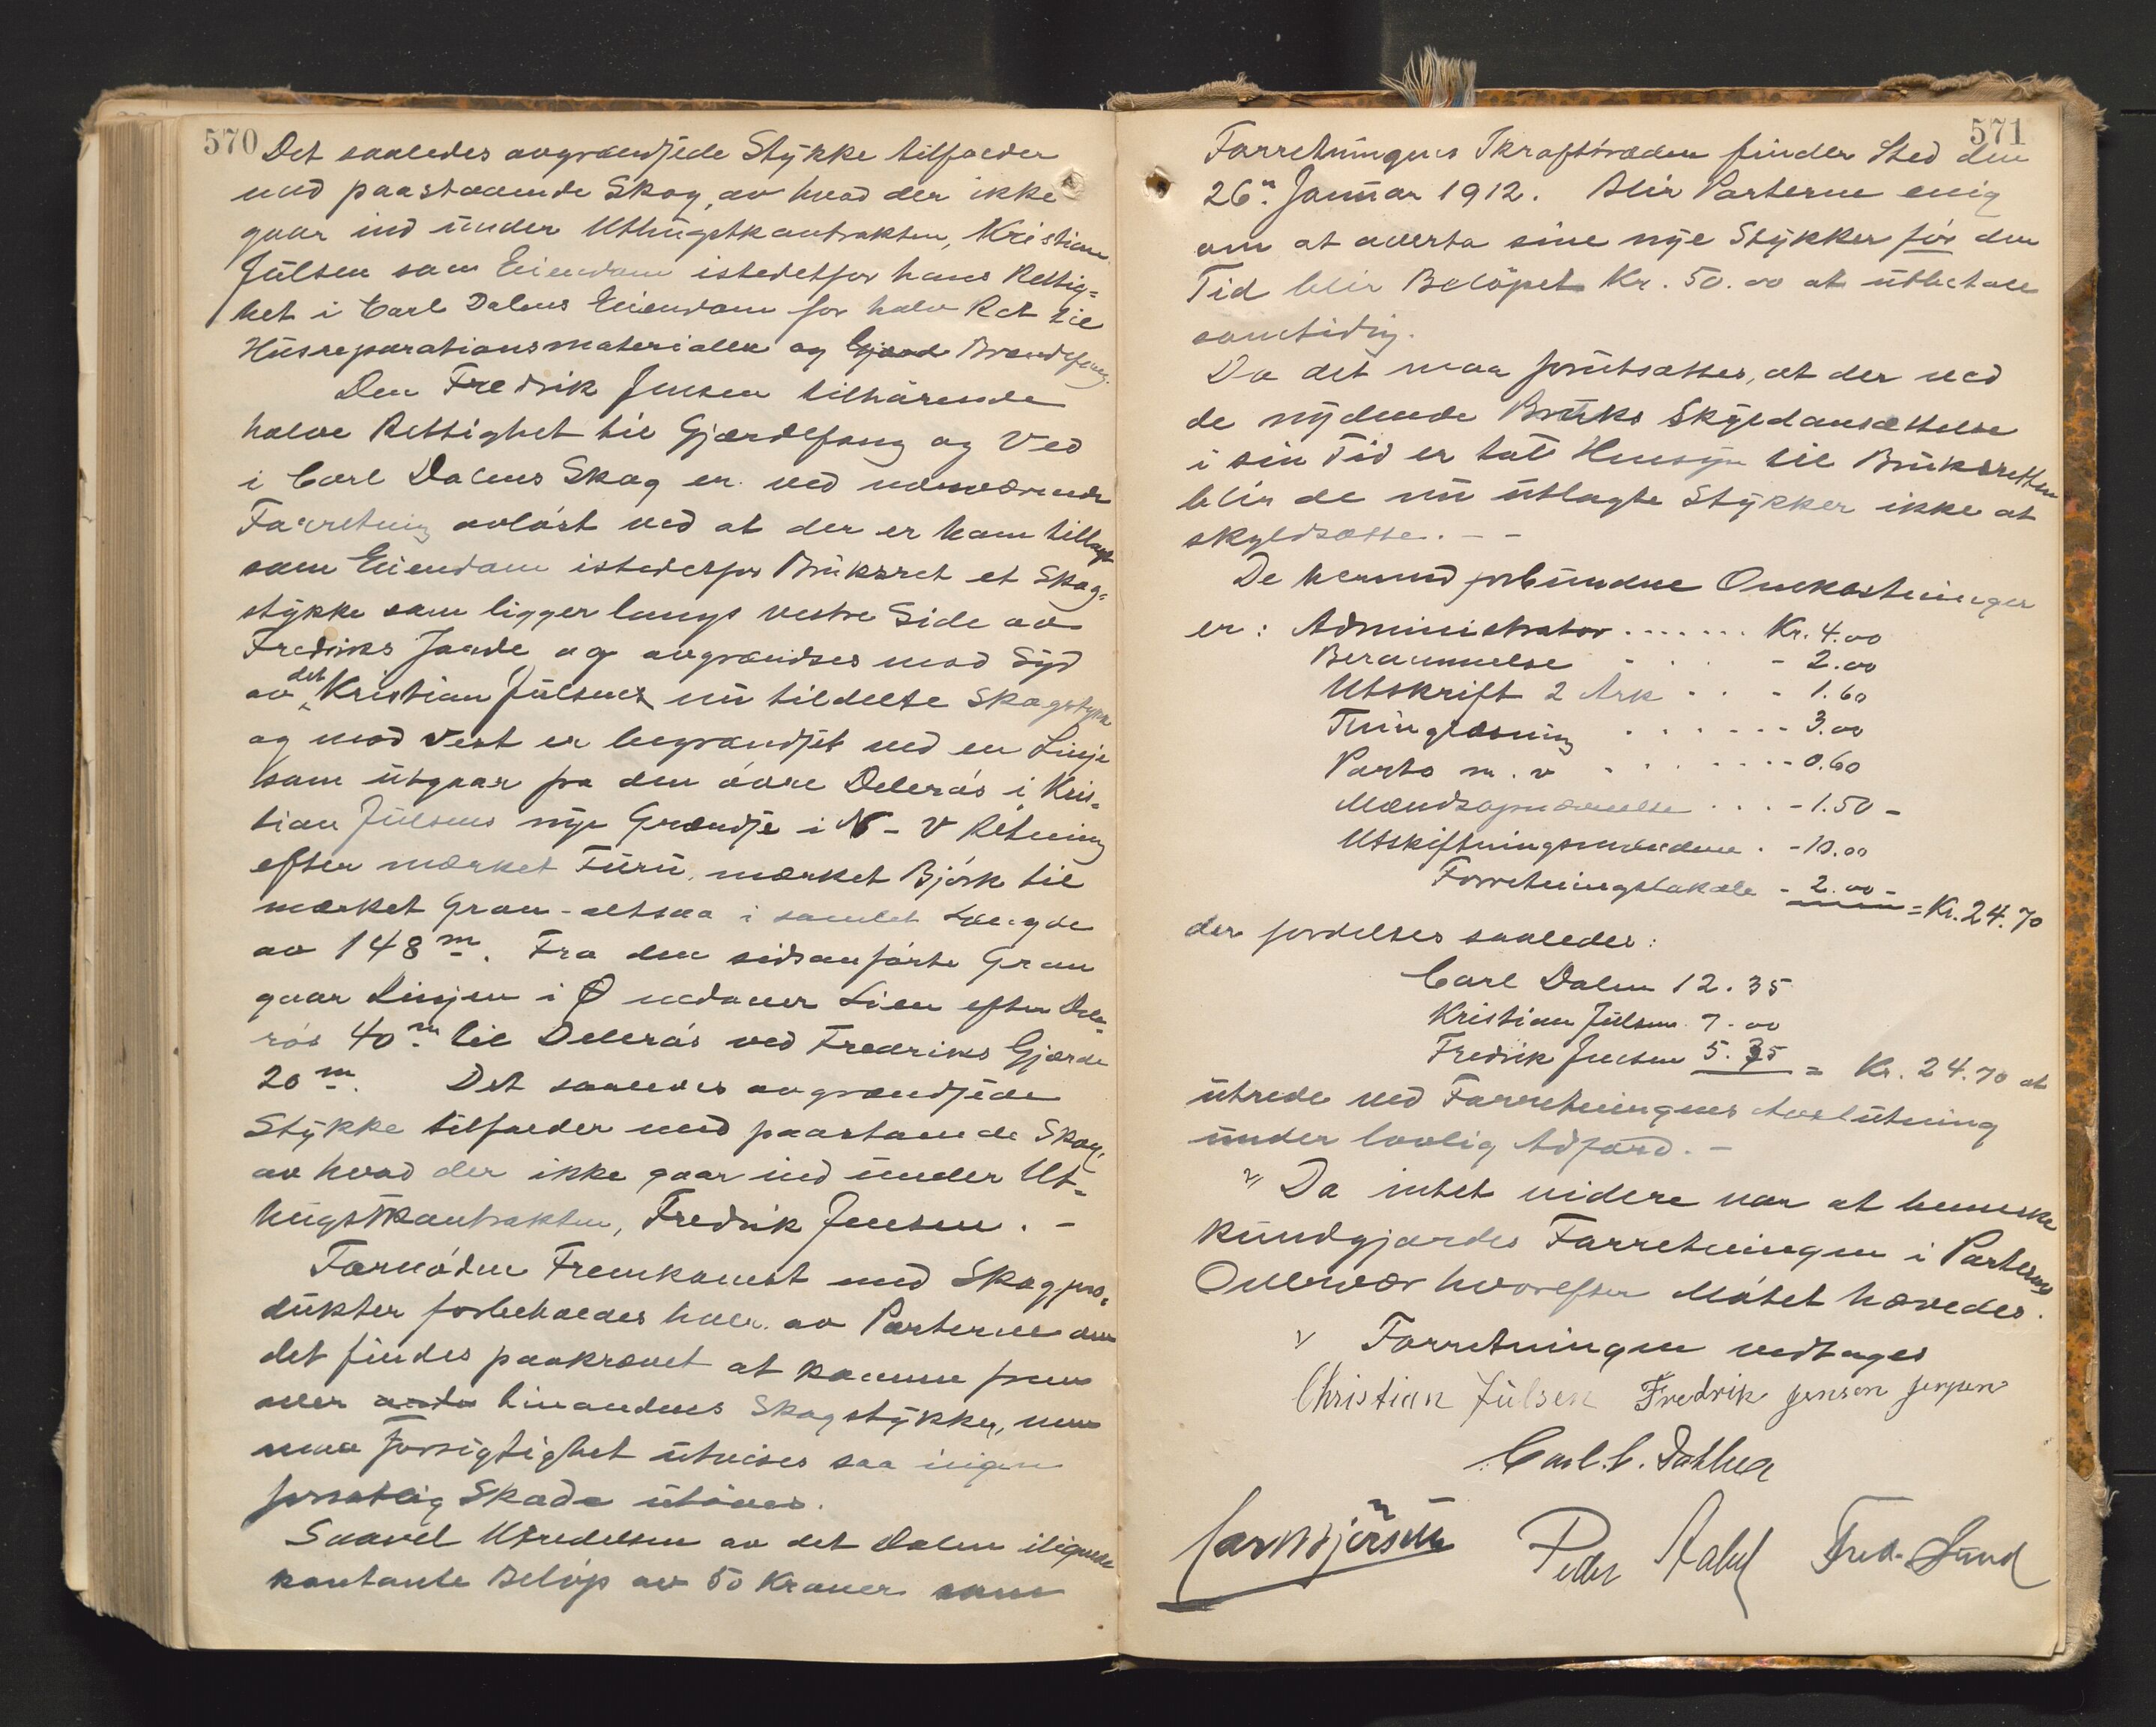 570
Det saaledes avgrændsede Stykke tilfalder
med paastaaende Skog, av hvad der ikke
gaar ind under Uthugstkontrakten, Kristian
Julsen som Eiendom istedetfor hans Rettig=
het i Carl Dalens Eiendom for halv Ret til
Husreparationsmaterialer og Brændefang.
Den Fredrik Jensen tilhörende
halve Rettighet til Gjærdefang og Ved
i Carl Dalens Skog er ved nærværende
Forretning avlöst ved at der er ham tillagt
som Eiendom istedetfor Bruksret et Skog=
stykke som ligger langs vestre Side av
Fredriks Jorde og avgrændses mod Syd
av det Kristian Julsens nu tildelte Skogstykke
og mod Vest er begrændset ved en Linje
som utgaar fra den övre Delerös i Kris=
tian Julsens nye Grændse i N-V Retning
efter mærket Furu, mærket Björk til
mærket Gran - altsaa i samlet Længde
av 148 m. Fra den sidstanförte Gran
gaar Linjen i Ø nedover Lien efter Dele=
rös 40 m til Delerös ved Fredriks Gjærde
20 m. Det saaledes avgrændsede
Stykke tilfalder med paastaaende Skog,
av hvad der ikke gaar ind under Ut=
hugstkontrakten, Fredrik Jensen. -
Fornöden Fremkomst med Skogpro=
dukter forbeholdes hver av Parterne om
det findes paakrævet at komme frem
over hinandens Skogstykker, men
maa Forsigtighet utvises saa ingen
forsætlig Skade utöves.
Saavel Utredelsen av det Dalen ilignede
kontante Belöp av 50 Kroner som
571
Forretningens Ikrafttræden finder Sted den
26n Januar 1912. Blir Parterne enig
om at overta sine nye Stykker för den
Tid blir Belöpet Kr. 50.00 at utbetale
samtidig.
Da det maa forutsættes, at der ved
de nydende Bruks Skyldansættelse
i sin Tid er tat Hensyn til Bruksretten
blir de nu utlagte Stykker ikke at
skyldsætte. - -
De hermed forbundne Omkostninger
er: Administrator ....... Kr. 4.00
Berammelse - - - 2.00
Utskrift 2 Ark - - - 1.60
Tinglæsning ...... - 3.00
Porto m. v. ....... - 0.60
Mændsopnævnelse ... - 1.50 -
Utskiftningsmændene . - 10.00
Forretningslokale - 2.00 - = Kr. 24.70
der fordeles saaledes:
Carl Dalen 12.35
Kristian Julsen 7.00
Fredrik Jensen 5.35 = Kr. 24.70 at
utrede ved Forretningens Avslutning
under lovlig Adfærd. -
Da intet videre var at bemerke
kundgjordes Forretningen i Parternes
Overvær hvorefter Mötet hævedes.
Forretningen vedtages
Christian Julsen Fredrik Jenson
Carl. C. Dahlen
Peder Fred. Sund